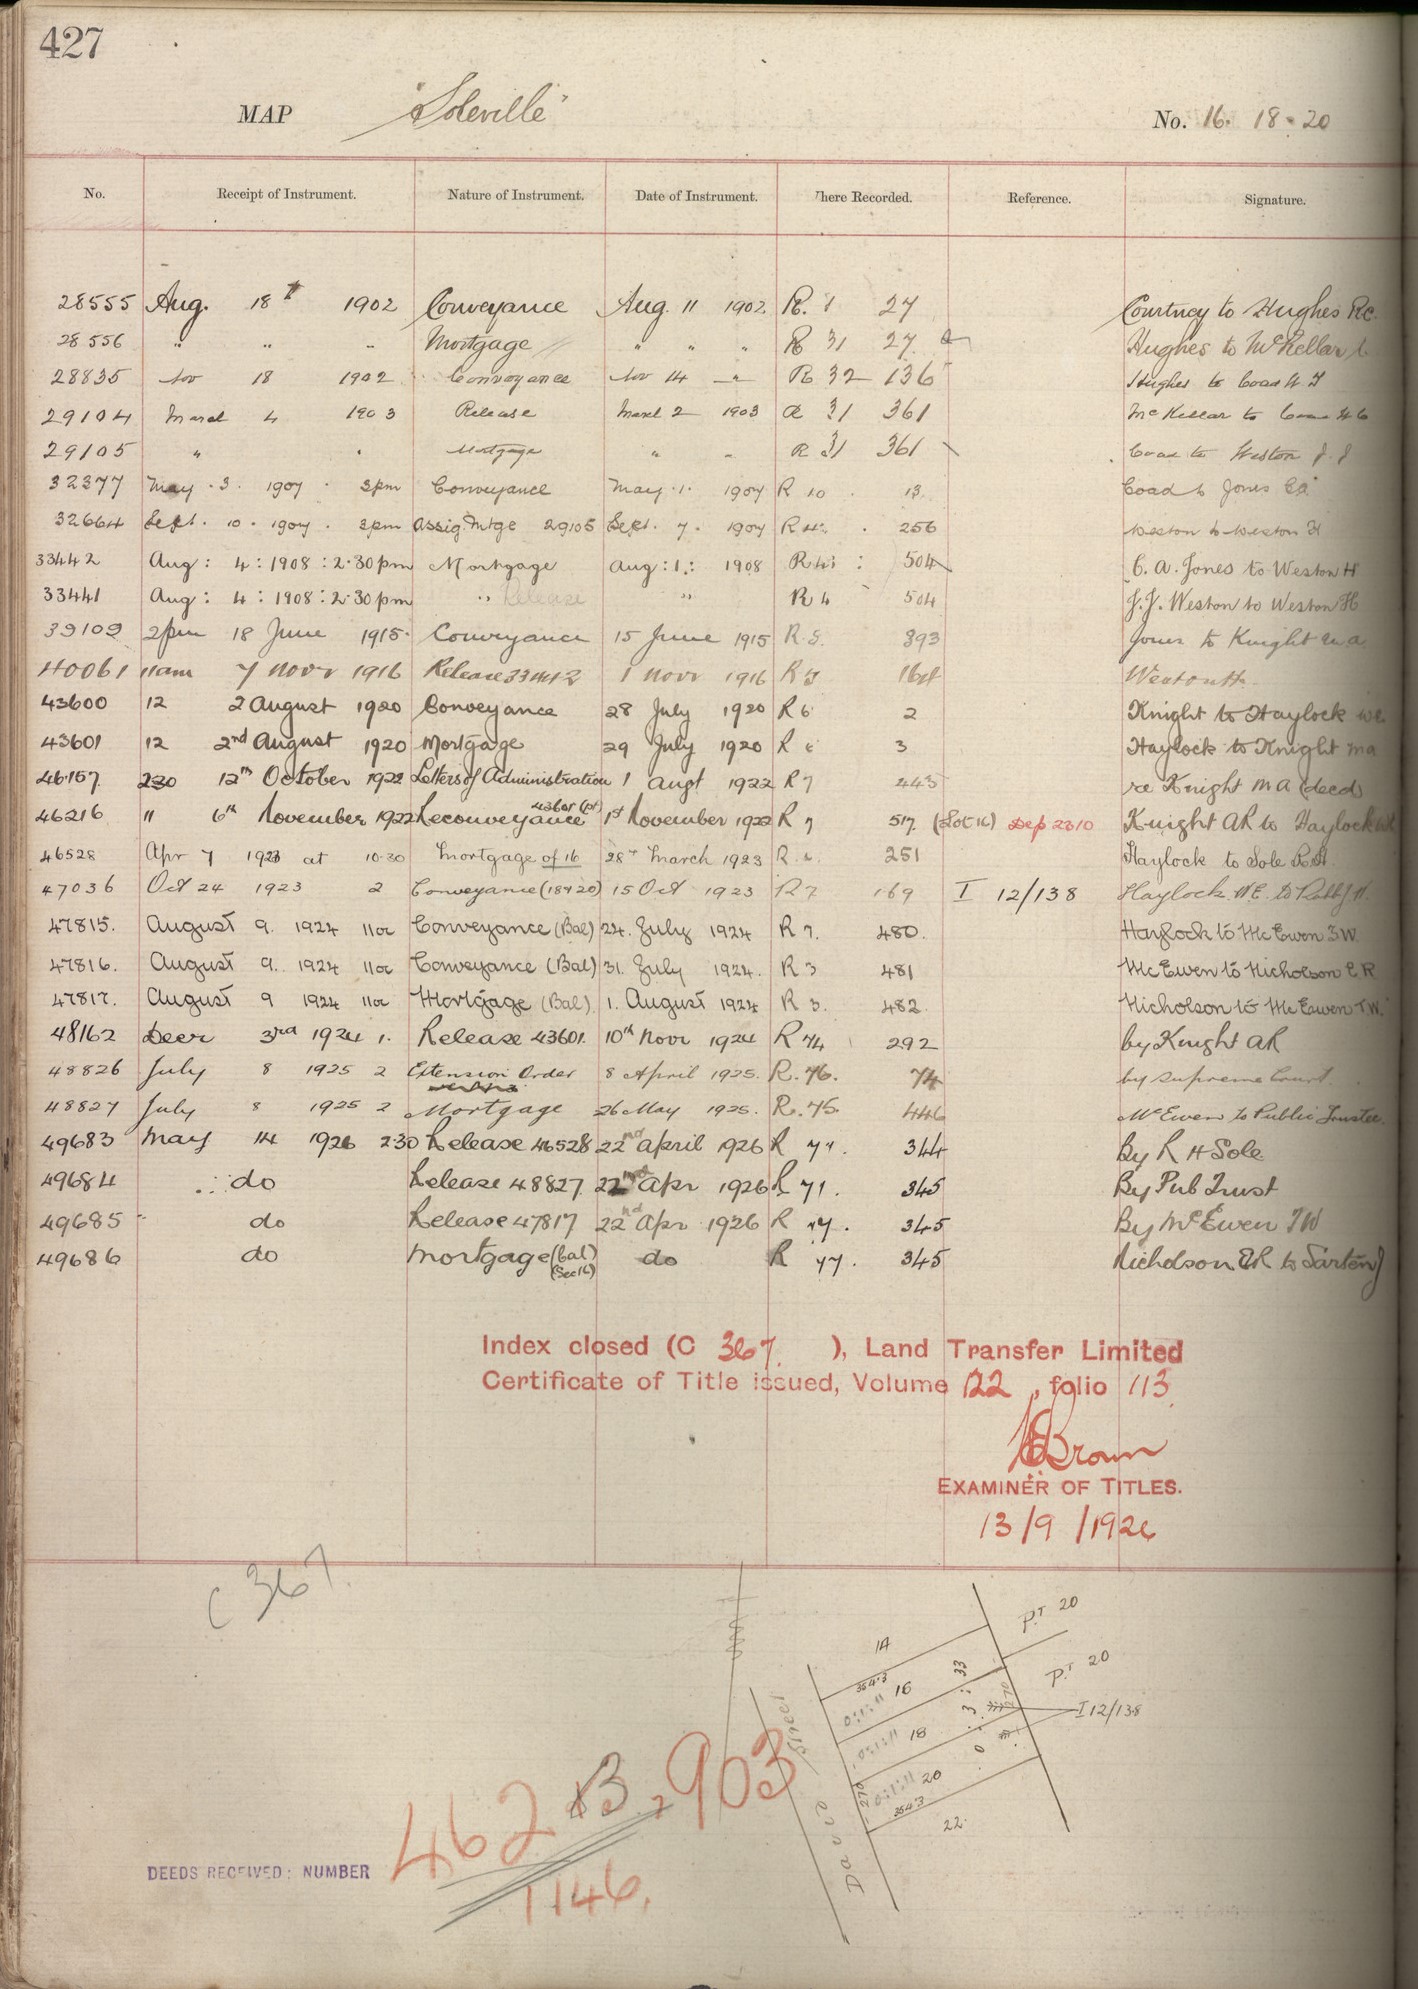 427
MAP "Soleville" No. 16. 18. 20
No. Receipt of Instrument. Nature of Instrument. Date of Instrument. here Recorded. Reference. Signature.
28555 Aug. 18th 1902 Conveyance Aug. 11 1902 R. 27 Courtney to Hughes
28556 " " " Mortgage " " " R 31 27 Hughes to McKellar
28835 Nov 18 1902 Conveyance Nov 14 " R 32 136 Hughes to Coad
29104 March 4 1903 Release March 2 1903 R 31 361 McKellar to Coad
29105 " " Mortgage " " R 31 361 Coad to Weston J. J
32377 May . 3 . 1907 . 3pm Conveyance May . 1 . 1907 R 10 . 13. Coad to Jones CA
32664 Sept . 10 . 1907 . 3pm Assig Mtge 29105 Sept . 7 . 1907 R . 256 Weston to Weston H
33442 Aug : 4 : 1908 : 2.30pm Mortgage Aug : 1 : 1908 R : 504 C. A. Jones to Weston H
33441 Aug : 4 : 1908 : 2.30pm " Release " R 4 504 J. J. Weston to Weston H
39109 2pm 18 June 1915. Conveyance 15 June 1915 R. 893 Jones to Knight M.A.
40061 11am 7 Novr 1916 Release 33442 1 Novr 1916 R 164 Weston H.
43600 12 2 August 1920 Conveyance 28 July 1920 R 6 2 Knight to Haylock WE
43601 12 2nd August 1920 Mortgage 29 July 1920 R 3 Haylock to Knight MA
46157 230 12th October 1922 Letters of Administration 1 Augt 1922 R 7 443 re Knight MA (decd)
46216 11 6th November 1922 Reconveyance 43601 (pt) 1st November 1922 R 7 517 (Lot 16) Dep 2310 Knight AR to Haylock WE
46528 Apr 7 1923 at 10.30 Mortgage of 16 28th March 1923 R. 251 Haylock to Sole R.H.
47036 Oct 24 1923 2 Conveyance (18 & 20) 15 Oct 1923 R 7 169 I 12/138 Haylock W.E. to Robb J H.
47815. August 9. 1924 11oc Conveyance (Bal) 24. July 1924 R 7. 480. Haylock to McEwen T.W.
47816. August 9. 1924 11oc Conveyance (Bal) 31. July 1924. R 3 481 McEwen to Nicholson E R
47817. August 9 1924 11oc Mortgage (Bal) 1. August 1924 R 3. 482. Nicholson to McEwen T.W.
48162 Decr 3rd 1924 1. Release 43601. 10th Novr 1924 R 74 292 by Knight AR
48826 July 8 1925 2 Extension Order 8 April 1925. R. 76. 74 by Supreme Court.
48827 July 8 1925 2 Mortgage 26 May 1925. R. 75 446 McEwen to Public Trustee.
49683 May 14 1926 2.30 Release 46528 22nd April 1926 R 77. 344 By R H Sole
49684 do Release 48827 22nd Apr 1926 R 71. 345 By Pub Trust
49685 do Release 47817 22nd Apr 1926 R 77. 345 By McEwen TW
49686 do Mortgage (bal) (Sec 16) do R 77. 345 Nicholson ER to Sarten J
Index closed (C 367. ), Land Transfer Limited
Certificate of Title issued, Volume 122, folio 113
Brown
EXAMINER OF TITLES.
13/9/1926
C 367.
Pt 20
14
Pt 20
354.3 16 33
I 12/138
270
18
0 . 3 .
20
270
354.3
22.
Street
Davis
462 B. 903
1146.
DEEDS RECEIVED: NUMBER